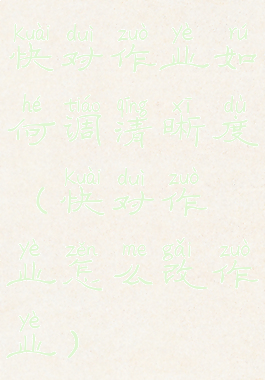 kuài duì zuò yè rú
快对作业如
hé qīng xī dù
何调清晰度
kuài duì zuò
（快对作
yè zěn me gǎi zuò
业怎么改作
yè
业）